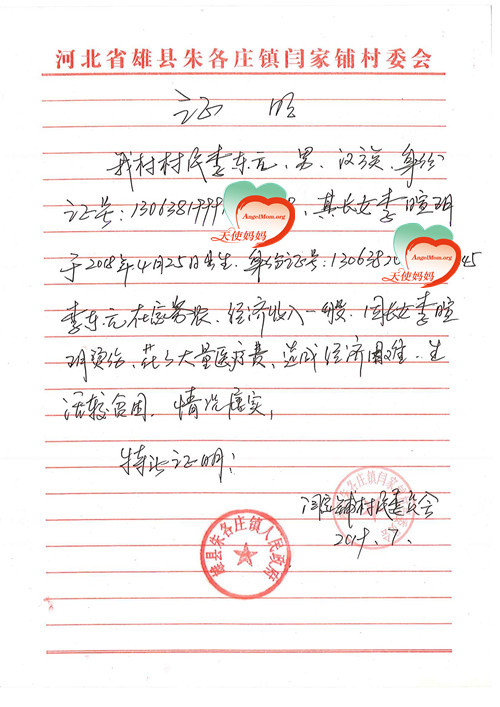 河北省雄县朱各庄镇闫家铺村委会
证 明
我村村民李东元、男、汉族、身份
证号:13063819999、其长女李暄玥
AngelMom.org
天使妈妈
于2018年4月25日出生.身份证号:130638245
AngelMom.org
天使妈妈
李东元在家务农、经济收入一般.因长女李暄
玥烫伤、花了大量医疗费、造成经济困难.生
活较贫困.情况属实,
特此证明;
闫家铺村民委员会
2019.7.
雄县朱各庄镇人民政府